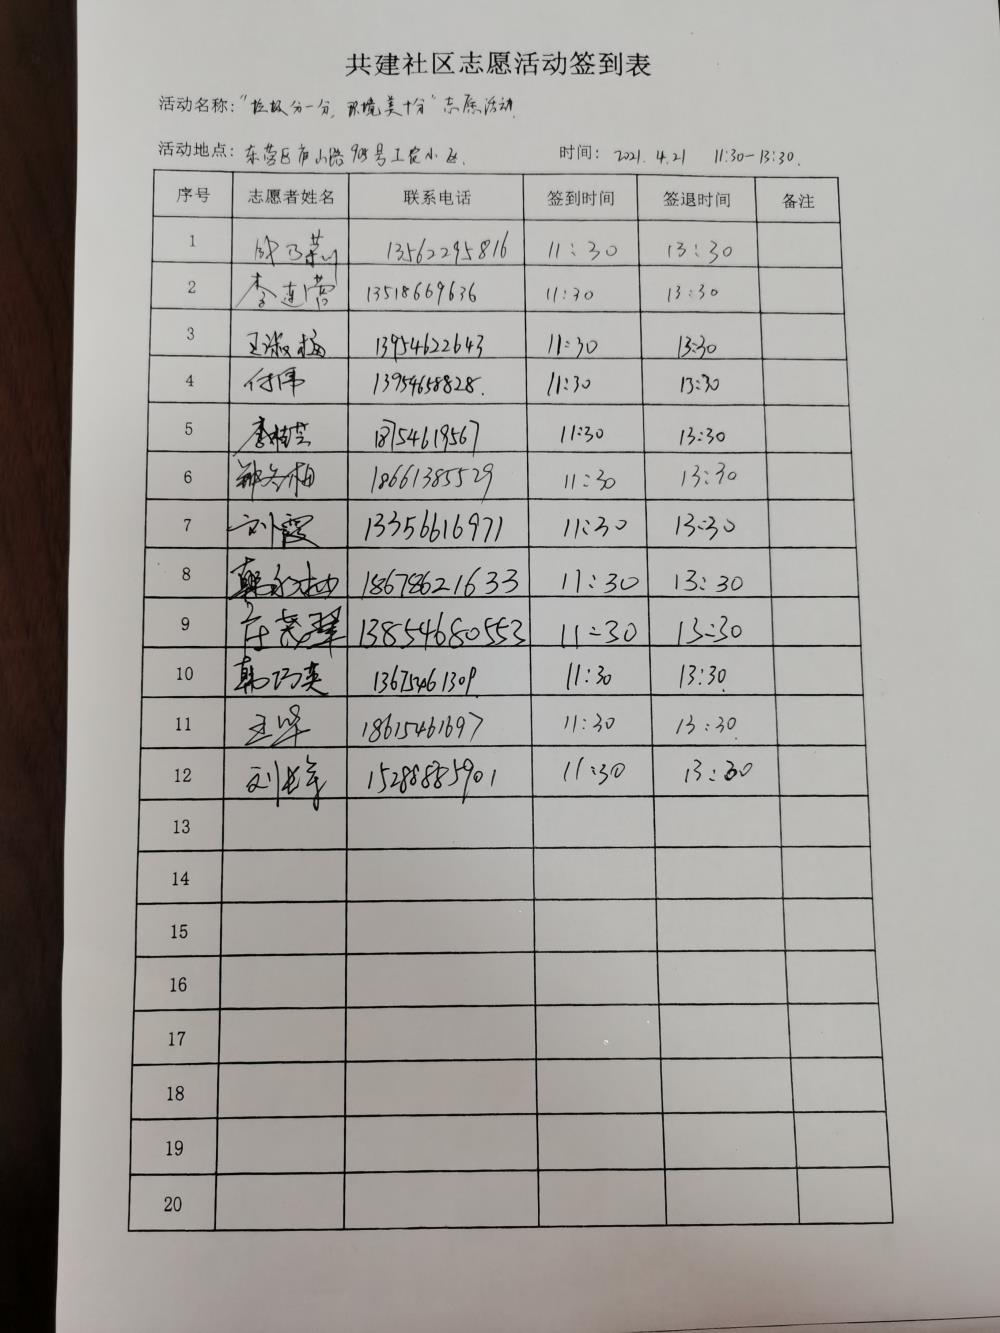 共建社区志愿活动签到表
活动名称："垃圾分一分，环境美十分"志愿活动
活动地点：东营区府山路 号工农小区. 时间：2021.4.21 11:30-13:30.
序号 志愿者姓名 联系电话 签到时间 签退时间 备注
1 13562295816 11:30 13:30
2 李连营 13518669636 11:30 13:30
3 王淑梅 13954622643 11:30 13:30
4 付伟 13954658828. 11:30 13:30
5 李桂芸 18754619567 11:30 13:30
6 郭冬梅 18661385529 11:30 13:30
7 刘霞 13356616971 11:30 13:30
8 18678621633 11:30 13:30
9 13854680553 11:30 13:30
10 韩巧英 13675461309 11:30 13:30
11 王军 18615461697 11:30 13:30
12 15288885901 11:30 13:30
13
14
15
16
17
18
19
20